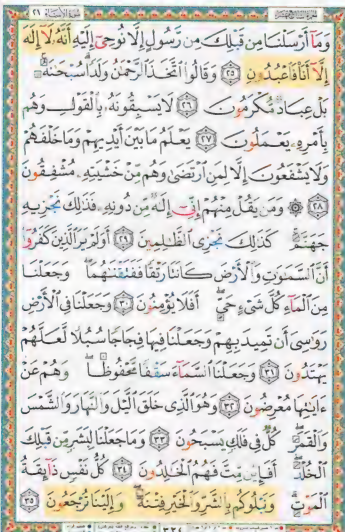 وَمَآ أَرْسَلْنَا مِن قَبْلِكَ مِن رَّسُولٍ إِلَّا نُوحِىٓ إِلَيْهِ أَنَّهُۥ لَآ إِلَٰهَ
إِلَّآ أَنَا۠ فَٱعْبُدُونِ ۝٢٥ وَقَالُوا۟ ٱتَّخَذَ ٱلرَّحْمَٰنُ وَلَدًا ۗ سُبْحَٰنَهُۥ ۚ
بَلْ عِبَادٌ مُّكْرَمُونَ ۝٢٦ لَا يَسْبِقُونَهُۥ بِٱلْقَوْلِ وَهُم
بِأَمْرِهِۦ يَعْمَلُونَ ۝٢٧ يَعْلَمُ مَا بَيْنَ أَيْدِيهِمْ وَمَا خَلْفَهُمْ
وَلَا يَشْفَعُونَ إِلَّا لِمَنِ ٱرْتَضَىٰ وَهُم مِّنْ خَشْيَتِهِۦ مُشْفِقُونَ
۝٢٨ ۞ وَمَن يَقُلْ مِنْهُمْ إِنِّىٓ إِلَٰهٌ مِّن دُونِهِۦ فَذَٰلِكَ نَجْزِيهِ
جَهَنَّمَ ۚ كَذَٰلِكَ نَجْزِى ٱلظَّٰلِمِينَ ۝٢٩ أَوَلَمْ يَرَ ٱلَّذِينَ كَفَرُوٓا۟
أَنَّ ٱلسَّمَٰوَٰتِ وَٱلْأَرْضَ كَانَتَا رَتْقًا فَفَتَقْنَٰهُمَا ۖ وَجَعَلْنَا
مِنَ ٱلْمَآءِ كُلَّ شَىْءٍ حَىٍّ ۖ أَفَلَا يُؤْمِنُونَ ۝٣٠ وَجَعَلْنَا فِى ٱلْأَرْضِ
رَوَٰسِىَ أَن تَمِيدَ بِهِمْ وَجَعَلْنَا فِيهَا فِجَاجًا سُبُلًا لَّعَلَّهُمْ
يَهْتَدُونَ ۝٣١ وَجَعَلْنَا ٱلسَّمَآءَ سَقْفًا مَّحْفُوظًا ۖ وَهُمْ عَنْ
ءَايَٰتِهَا مُعْرِضُونَ ۝٣٢ وَهُوَ ٱلَّذِى خَلَقَ ٱلَّيْلَ وَٱلنَّهَارَ وَٱلشَّمْسَ
وَٱلْقَمَرَ ۖ كُلٌّ فِى فَلَكٍ يَسْبَحُونَ ۝٣٣ وَمَا جَعَلْنَا لِبَشَرٍ مِّن قَبْلِكَ
ٱلْخُلْدَ ۖ أَفَإِي۟ن مِّتَّ فَهُمُ ٱلْخَٰلِدُونَ ۝٣٤ كُلُّ نَفْسٍ ذَآئِقَةُ
ٱلْمَوْتِ ۗ وَنَبْلُوكُم بِٱلشَّرِّ وَٱلْخَيْرِ فِتْنَةً ۖ وَإِلَيْنَا تُرْجَعُونَ ۝٣٥
٣٢٤